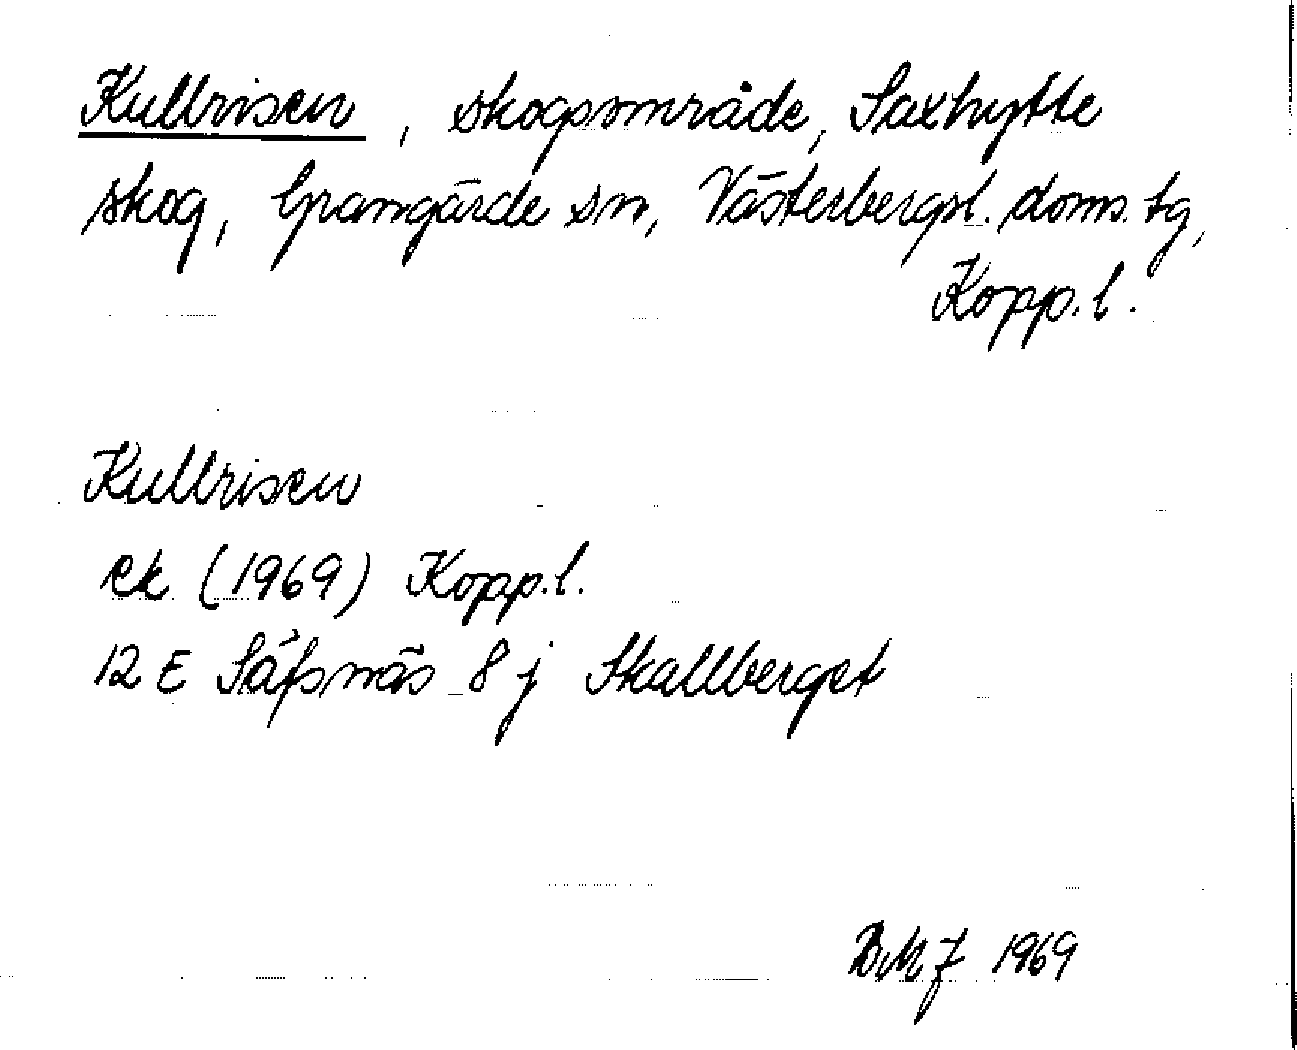 Kullrisen, skogsområde, Saxhytte
skog, Grangärde sn, Västerbergsl. doms. tg,
Kopp. l.
Kullrisen
ek (1969) Kopp. l.
12 E Säfsnäs 8 j Skallberget
BMJ 1969